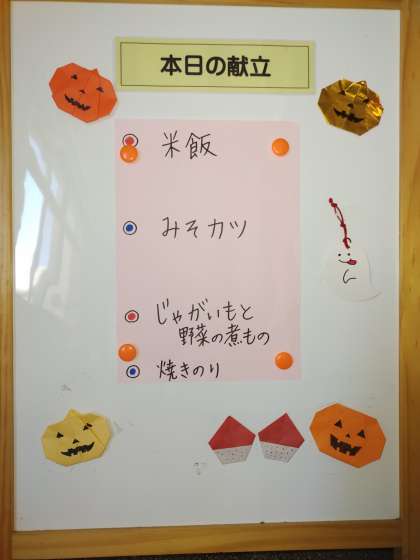 本日の献立
米飯
みそカツ
じゃがいもと
野菜の煮もの
焼きのり